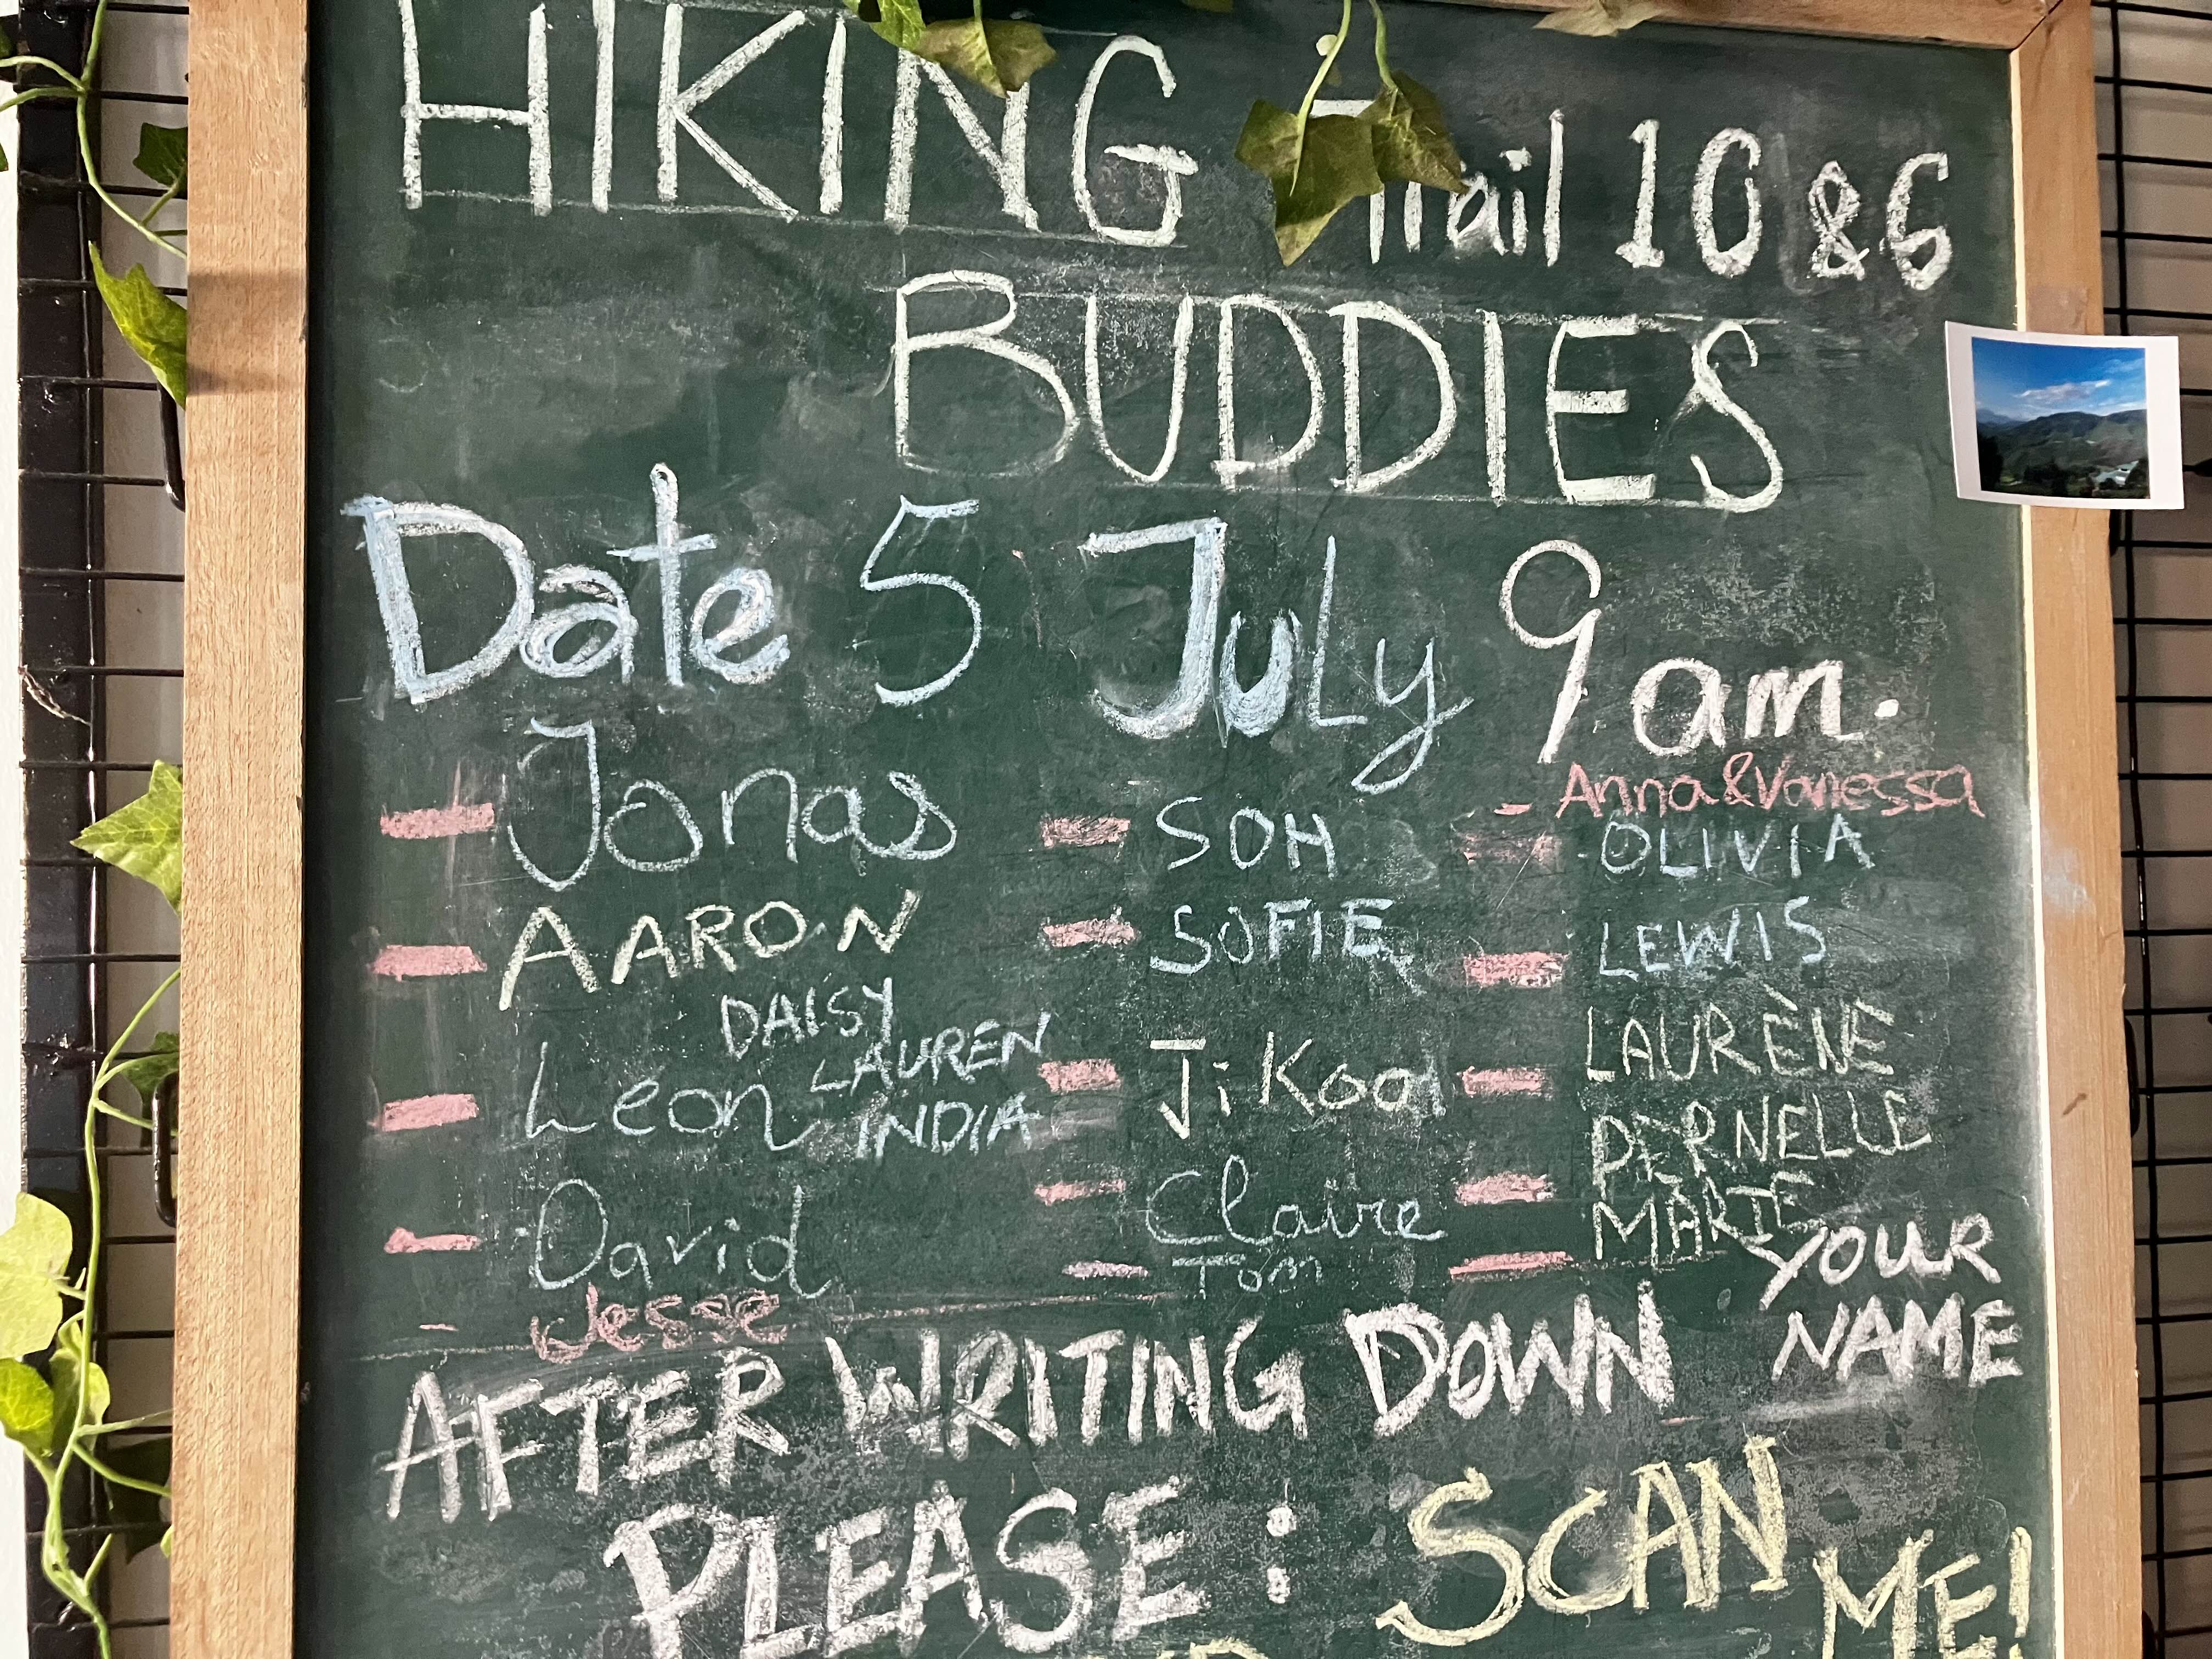 HIKING Trail 10 & 6
BUDDIES
Date 5 July 9 am.
- Jonas
- AARON
DAISY
LAUREN
- Leon INDIA
- David
- Jesse
- SOH
- SOFIE
- Ji Kood
- Claire
- Tom
- Anna & Vanessa
- OLIVIA
- LEWIS
- LAURÈNE
- PERNELLE
- MARTE
AFTER WRITING DOWN YOUR NAME
PLEASE : SCAN ME!